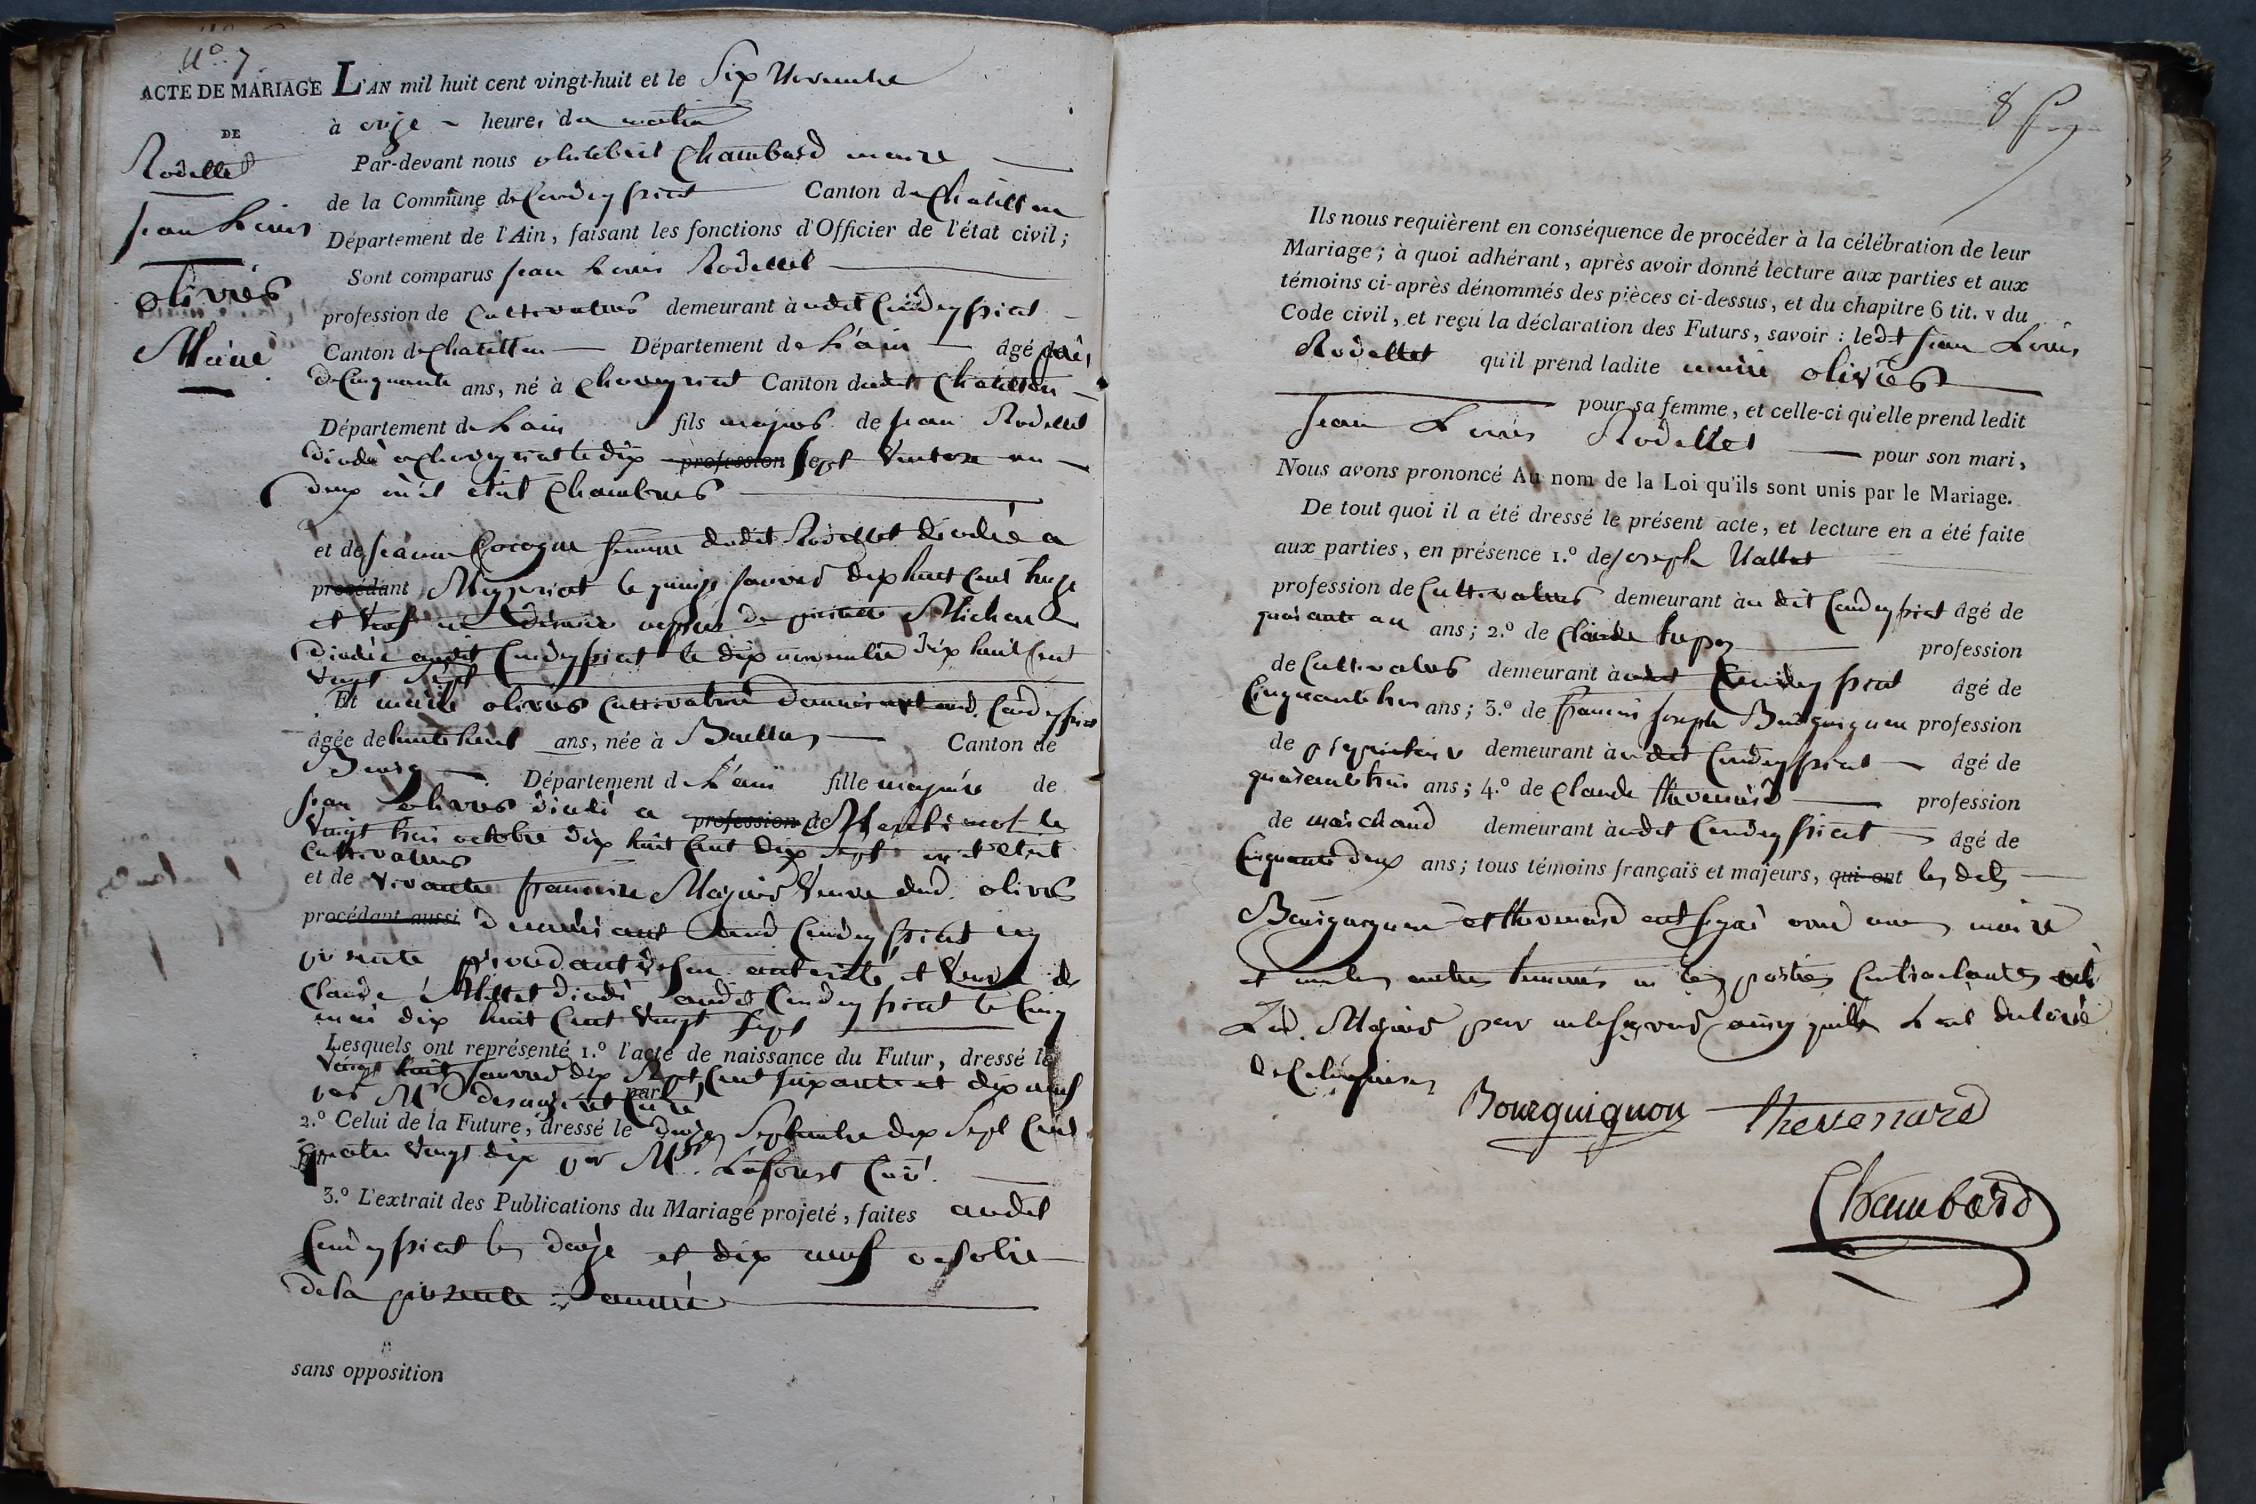 N.o 7
ACTE DE MARIAGE
DE
Rodellet
Jean Louis
olivier
Marie
L'AN mil huit cent vingt-huit et le Six Novembre
à onze heures du matin
Par-devant nous Chambard maire
de la Commune de Condeyssiat Canton de Chatillon
Département de l'Ain, faisant les fonctions d'Officier de l'état civil;
Sont comparus Jean Louis Rodellet
profession de Cultivateur demeurant audit Condeyssiat
Canton de Chatillon Département de L'ain âgé
de Cinquante ans, né à Chaveyriat Canton dudit Chatillon
Département de L'ain fils majeur de Jean Rodellet
décédé a Chaveyriat le dix profession sept Ventose an
deux où il etait Chambrier
et de Jeanne Cocogne femme dudit Rodellet décédée a
procédant Mezeriat le quinze Janvier dix huit Cent treize
et Veuf en derniere de Michon
décédée audit Condeyssiat le dix novembre dix huit Cent
vingt Sept
Et marie olivier Cultivatrice demeurant aud. Condeyssiat
âgée de trente huit ans, née à Buellas Canton de
Bourg Département de L'ain fille majeure de
Jean olivier décédé a profession de Montracol le
Vingt trois octobre dix huit Cent dix Sept où il etait
Cultivateur
et de vivante francoise Veuve dud. olivier
procédant aussi demeurant aud Condeyssiat icy
presente procédant de son autorité et Veuve de
Claude décédé audit Condeyssiat le Cinq
mai dix huit Cent Vingt Sept
Lesquels ont représenté 1.º l'acte de naissance du Futur, dressé le
vingt huit Janvier dix Sept Cent Soixante et dix neuf
par Mr Curé
2.º Celui de la Future, dressé le douze Septembre dix Sept Cent
quatre Vingt dix par Mr. Laforest Curé
3.º L'extrait des Publications du Mariage projeté, faites audit
Condeyssiat les douze et dix neuf octobre
de la presente année
sans opposition
8
Ils nous requièrent en conséquence de procéder à la célébration de leur
Mariage; à quoi adhérant, après avoir donné lecture aux parties et aux
témoins ci-après dénommés des pièces ci-dessus, et du chapitre 6 tit. v du
Code civil, et reçu la déclaration des Futurs, savoir: ledt Jean Louis
Rodellet qu'il prend ladite marie olivier
pour sa femme, et celle-ci qu'elle prend ledit
Jean Louis Rodellet pour son mari,
Nous avons prononcé Au nom de la Loi qu'ils sont unis par le Mariage.
De tout quoi il a été dressé le présent acte, et lecture en a été faite
aux parties, en présence 1.º de Joseph Vallet
profession de Cultivateur demeurant audit Condeyssiat âgé de
quarante un ans; 2.º de Claude profession
de Cultivateur demeurant audit Condeyssiat âgé de
Cinquante trois ans; 3.º de francois Joseph Bourguignon profession
de proprietaire demeurant audit Condeyssiat âgé de
quarante trois ans; 4.º de Claude thevenard profession
de marchand demeurant audit Condeyssiat âgé de
Cinquante deux ans; tous témoins français et majeurs, qui ont les dits
Bourguignon et thevenard ont signé avec nous maire
et non les autres temoins ni les parties Contractantes ni
Lad. pour ne le savoir ainsy quils L'ont declaré
de Ce Enquis
Bourguignon thevenard
Chambard